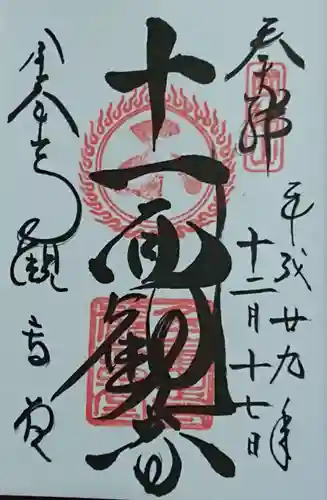 奉拝
平成廿九年
十二月十七日
十一面観音
観音堂